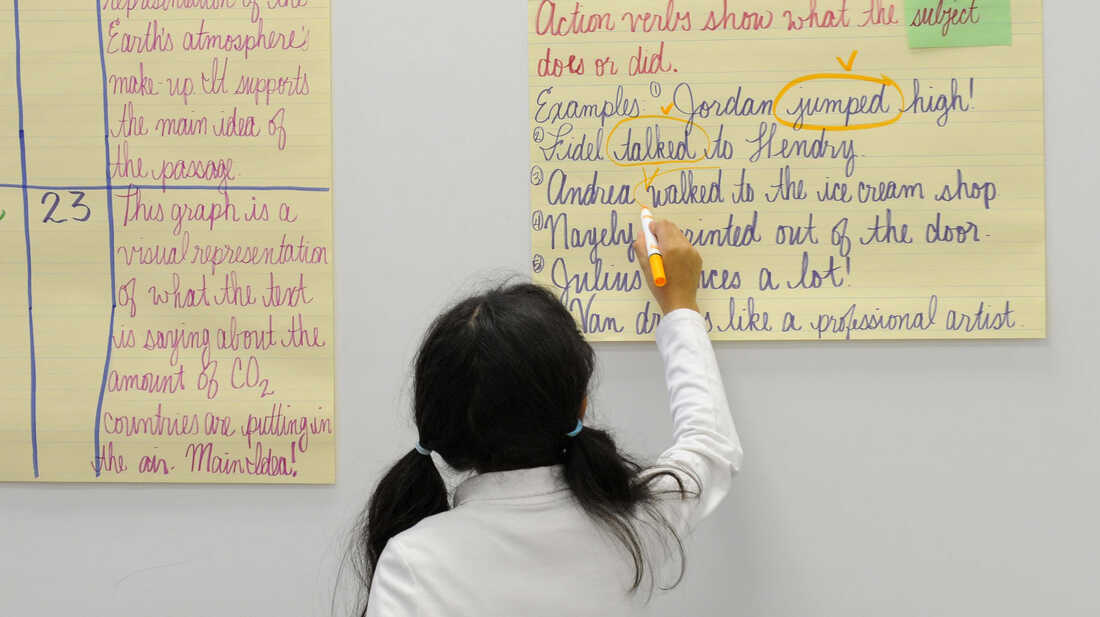 representation of the
Earth's atmosphere's
make-up. It supports
the main idea of
the passage.
23
This graph is a
visual representation
of what the text
is saying about the
amount of CO2
countries are putting in
the air. Main Idea!
Action verbs show what the subject
does or did.
Examples: ① Jordan jumped high!
② Fidel talked to Hendry.
③ Andrea walked to the ice cream shop.
④ Nayely out of the door.
⑤ Julius a lot!
Van like a professional artist.